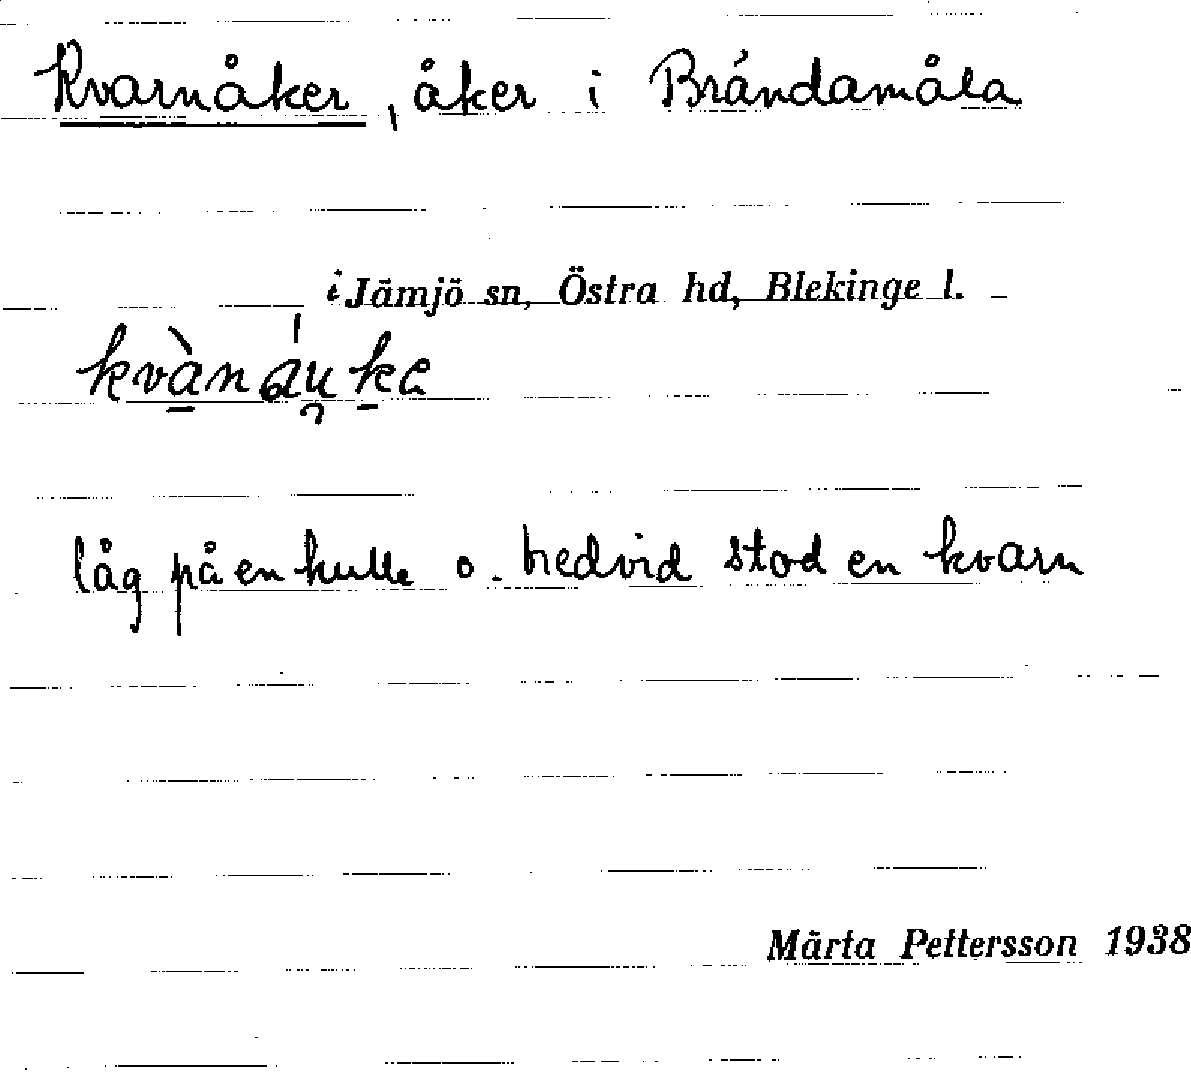 Kvarnåker, åker i Brándamåla
i Jämjö sn, Östra hd, Blekinge l.
kvànáu̯kɐ
låg på en kulle o. bredvid stod en kvarn
Märta Pettersson 1938